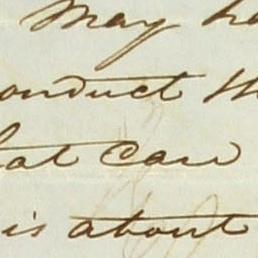 May ha
onduct th
hat care
is about